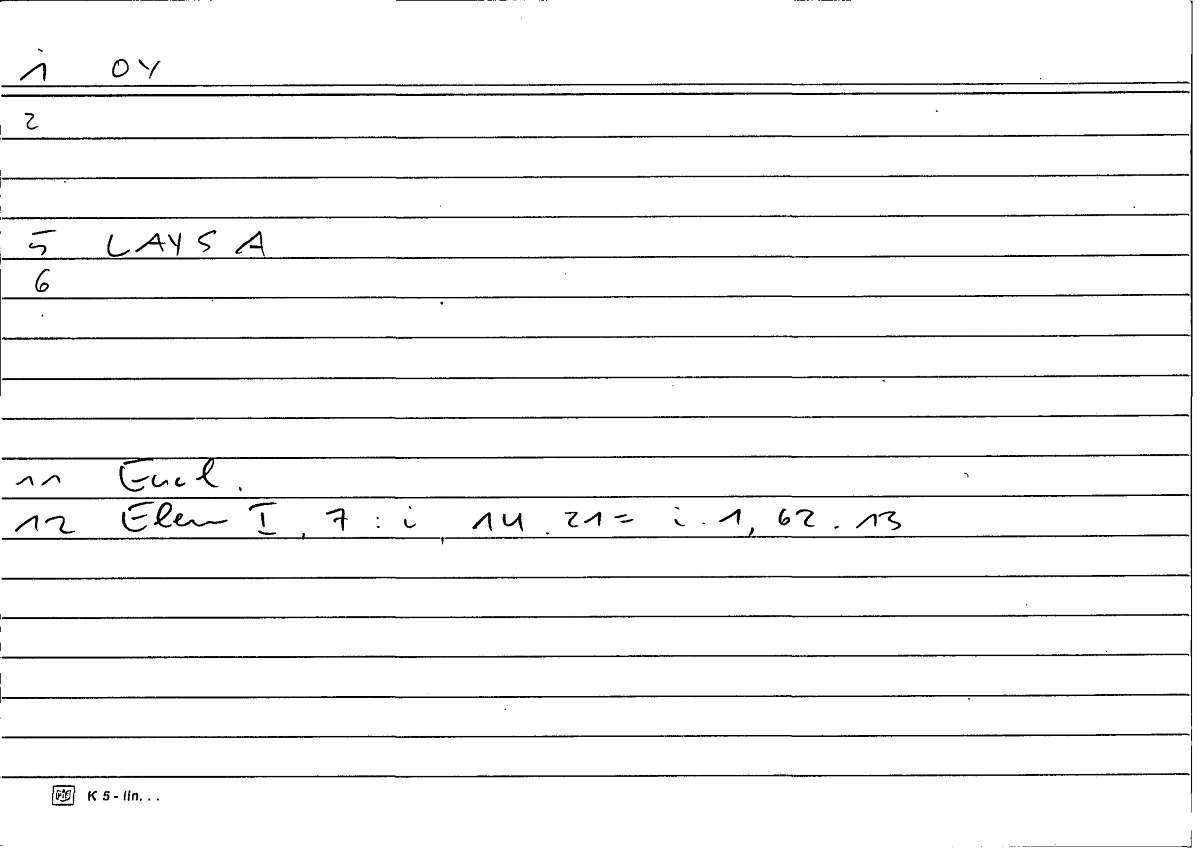 1 OY
2
5 LAYSA
6
11 Eucl.
12 Elem I, 7 : i, 14.21 = i.1, 62.13
K 5 - lin...